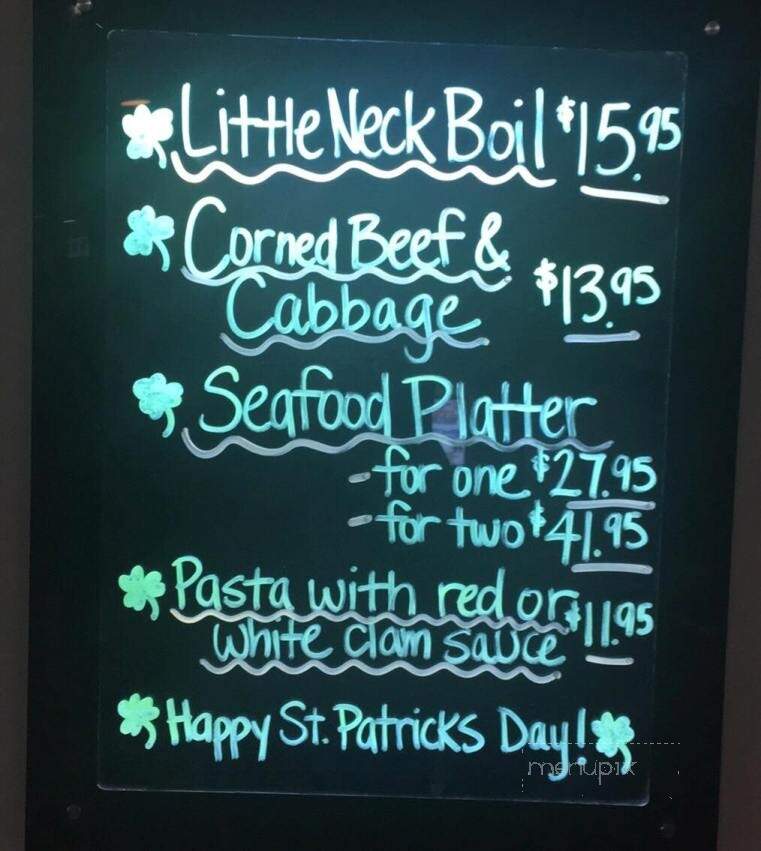 Little Neck Boil $15.95
Corned Beef &
Cabbage $13.95
Seafood Platter
- for one $27.95
- for two $41.95
Pasta with red or
white clam sauce $11.95
Happy St. Patricks Day!
menupix